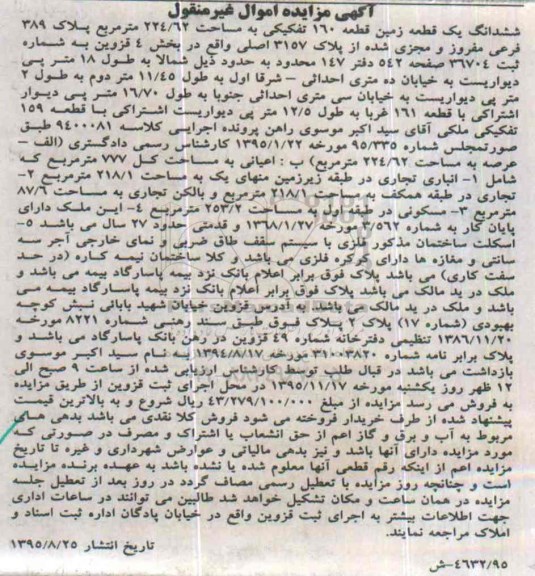 آگهی مزایده اموال غیرمنقول
ششدانگ یک قطعه زمین قطعه ۱۶۰ تفکیکی به مساحت ۲۲۴/۶۲ مترمربع پلاک ۳۸۹
فرعی مفروز و مجزی شده از پلاک ۳۱۵۷ اصلی واقع در بخش ۴ قزوین به شماره
ثبت ۳۶۷۰۴ صفحه ۵۴۲ دفتر ۱۴۷ محدود به حدود ذیل شمالا به طول ۱۸ متر پی
دیواریست به خیابان ده متری احداثی – شرقا اول به طول ۱۱/۴۵ متر دوم به طول ۲
متر پی دیواریست به خیابان سی متری احداثی جنوبا به طول ۱۶/۷۰ متر پی دیوار
اشتراکی با قطعه ۱۶۱ غربا به طول ۱۲/۵ متر پی دیواریست اشتراکی با قطعه ۱۵۹
تفکیکی ملکی آقای سید اکبر موسوی راهن پرونده اجرایی کلاسه ۹۴۰۰۰۸۱ طبق
صورتمجلس شماره ۹۵/۳۳۵ مورخه ۱۳۹۵/۱/۲۲ کارشناس رسمی دادگستری (الف –
عرصه به مساحت ۲۲۴/۶۲ مترمربع) ب : اعیانی به مساحت کل ۷۷۷ مترمربع که
شامل ۱- انباری تجاری در طبقه زیرزمین منهای یک به مساحت ۲۱۸/۱ مترمربع ۲-
تجاری در طبقه همکف به مساحت ۲۱۸/۱ مترمربع و بالکن تجاری به مساحت ۸۷/۶
مترمربع ۳- مسکونی در طبقه اول به مساحت ۲۵۳/۲ مترمربع ۴- این ملک دارای
پایان کار به شماره ۷۵۶۲ مورخه ۱۳۶۸/۱/۲۷ و قدمتی حدود ۲۷ سال می باشد ۵-
اسکلت ساختمان مذکور فلزی با سیستم سقف طاق ضربی و نمای خارجی آجر سه
سانتی و مغازه ها دارای کرکره فلزی می باشد و کلا ساختمان نیمه کاره (در حد
سفت کاری) می باشد پلاک فوق برابر اعلام بانک نزد بیمه پاسارگاد بیمه می باشد و
ملک در ید مالک می باشد پلاک فوق برابر اعلام بانک نزد بیمه پاسارگاد بیمه می
باشد و ملک در ید مالک می باشد به آدرس قزوین خیابان شهید بابائی نبش کوچه
بهبودی (شماره ۱۷) پلاک ۲ پلاک فوق طبق سند رهنی شماره ۸۲۲۱ مورخه
۱۳۸۶/۱۱/۲۰ تنظیمی دفترخانه شماره ۴۹ قزوین در رهن بانک پاسارگاد می باشد و
پلاک برابر نامه شماره ۳۱۰۰۳۸۲۰ مورخه ۱۳۹۴/۸/۱۷ به نام سید اکبر موسوی
بازداشت می باشد در قبال طلب توسط کارشناس ارزیابی شده از ساعت ۹ صبح الی
۱۲ ظهر روز یکشنبه مورخه ۱۳۹۵/۱۱/۱۷ در محل اجرای ثبت قزوین از طریق مزایده
به فروش می رسد مزایده از مبلغ ۴۳/۲۷۹/۱۰۰/۰۰۰ ریال شروع و به بالاترین قیمت
پیشنهاد شده از طرف خریدار فروخته می شود فروش کلا نقدی می باشد بدهی های
مربوط به آب و برق و گاز اعم از حق انشعاب یا اشتراک و مصرف در صورتی که
مورد مزایده دارای آنها باشد و نیز بدهی مالیاتی و عوارض شهرداری و غیره تا تاریخ
مزایده اعم از اینکه رقم قطعی آنها معلوم شده یا نشده باشد به عهده برنده مزایده
است و چنانچه روز مزایده با تعطیل رسمی مصادف گردد در روز بعد از تعطیل جلسه
مزایده در همان ساعت و مکان تشکیل خواهد شد طالبین می توانند در ساعات اداری
جهت اطلاعات بیشتر به اجرای ثبت قزوین واقع در خیابان پادگان اداره ثبت اسناد و
املاک مراجعه نمایند.
تاریخ انتشار ۱۳۹۵/۸/۲۵
۴۶۳۲/۹۵-ش